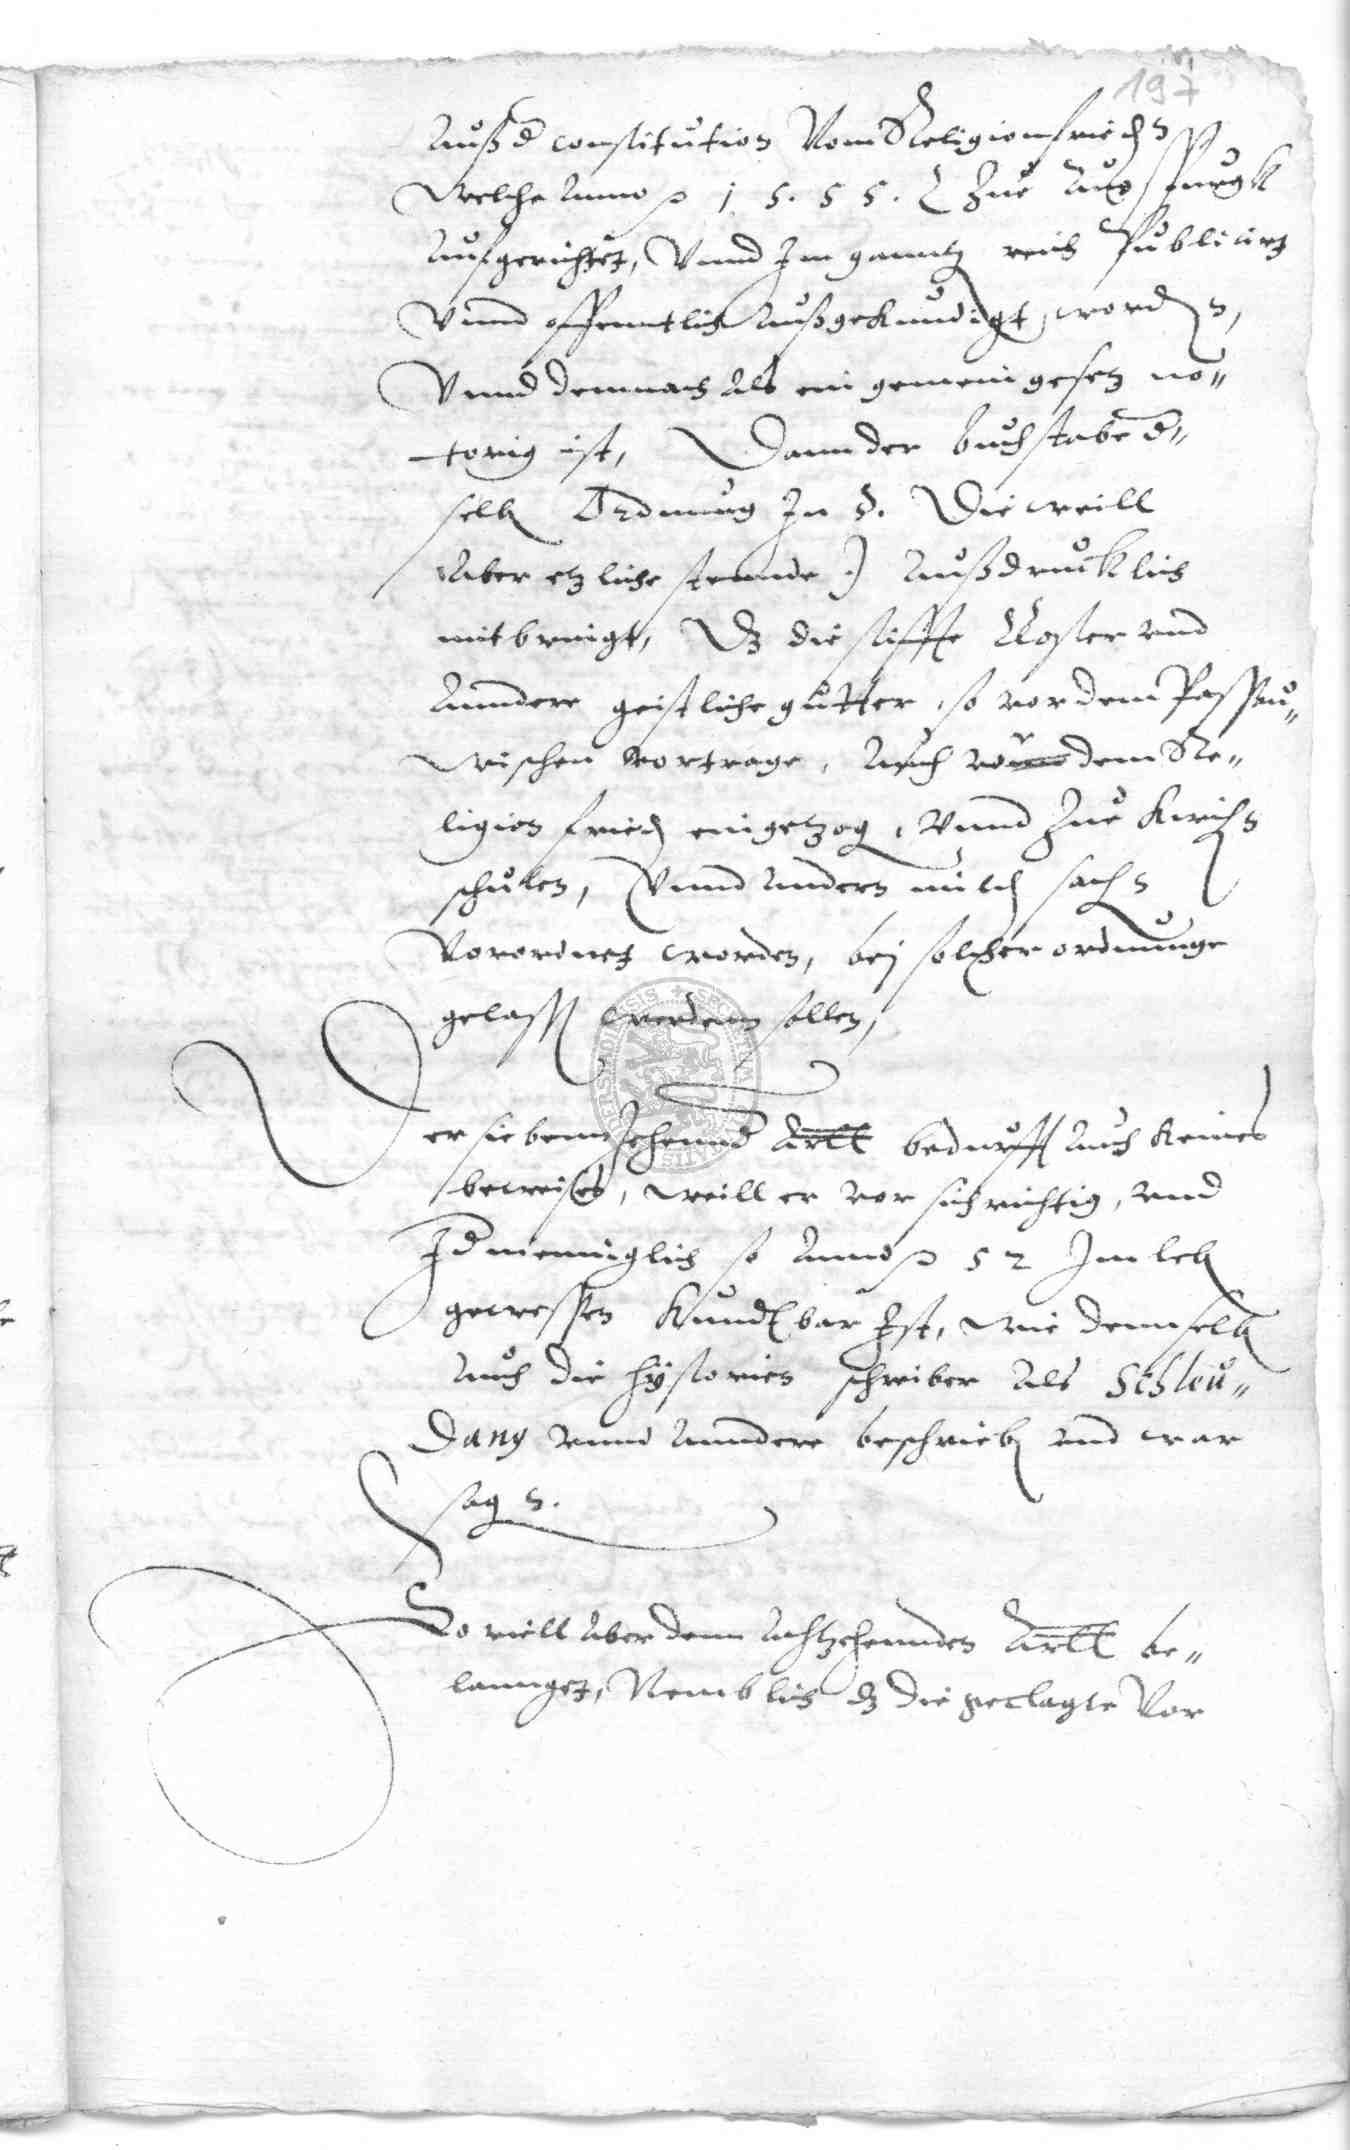 197
Auß d constitution Vom Religionfrieden
welche Anno 1.5.5.5. Zue Augspurgk
Aufgerichtet, Vnnd Im ganntz reich Publicirt
Vnnd offenntlich Außgekundigt, worden,
Vnnd demnach als ein gemein gesetz no=
torig ist, Dann der buchstabe d=
selb Ordnung In §. Die weill
Aber etzliche stennde) Außdrucklich
mitbringt, Dz die stiffte Closter vnd
Anndere geistliche gutter, so vor dem Passau=
wischen vortrage, Auch vor dem Re=
ligion fried eingetzog, Vnnd Zue Kirchen
schulen, Vnnd andern milden sachen
Vorordnet worden, bej solcher ordnunge
gelassen werdenn sollen,
Der siebennzehennd Artt bedurff auch keines
beweises, weill er vor sich richtig, vnd
Jdmenniglich so Anno 52 Im leben
gewessen Kundbar Ist, wie dennselb
auch die historien schreiber Als Schleu=
dang vnnd Anndere beschrieben vnd war
sagen.
So viell Aber denn Achtzehennden Artt be=
lannget, Nemblich dz die geclagte Vor